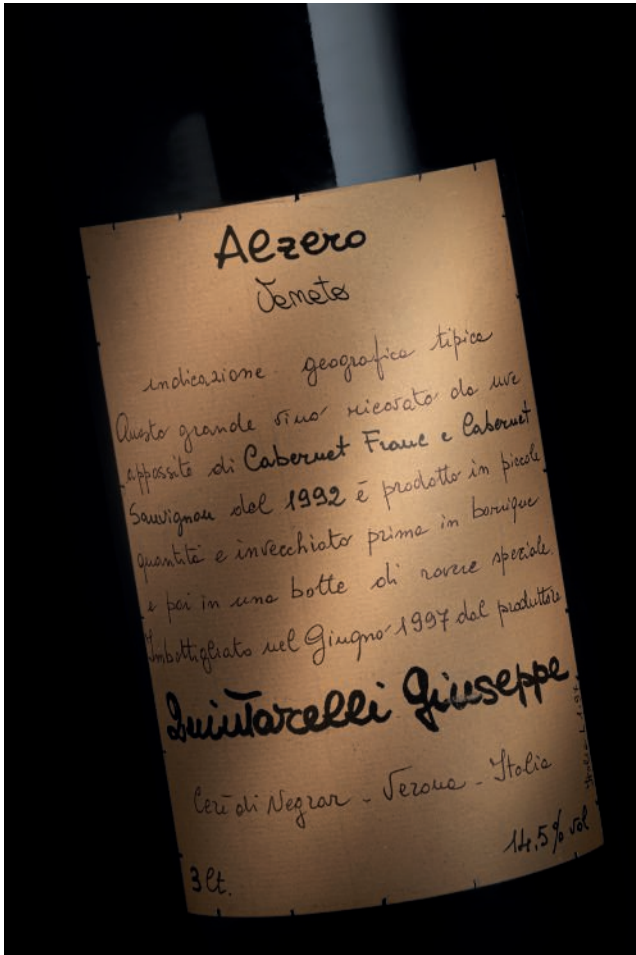 Alzero
Veneto
indicazione geografica tipica
Questo grande vino ricavato da uve
appassite di Cabernet Franc e Cabernet
Sauvignon del 1992 è prodotto in piccole
quantità e invecchiato prima in barrique
e poi in una botte di rovere speziale.
Imbottigliato nel Giugno 1997 dal produttore
Quintarelli Giuseppe
Cerè di Negrar - Verona - Italia
14,5% vol
3 lt.